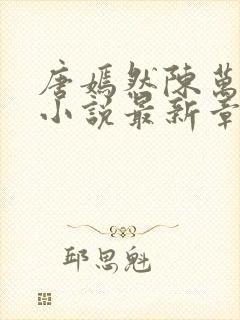 唐嫣然陳萬
小說最新章
邱思魁